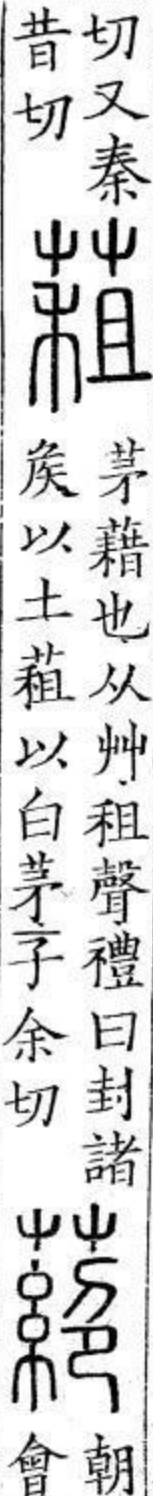 切又秦
昔切
蒩
茅藉也从艸租聲禮曰封諸
矦以土蒩以白茅子余切
蕝
朝
會